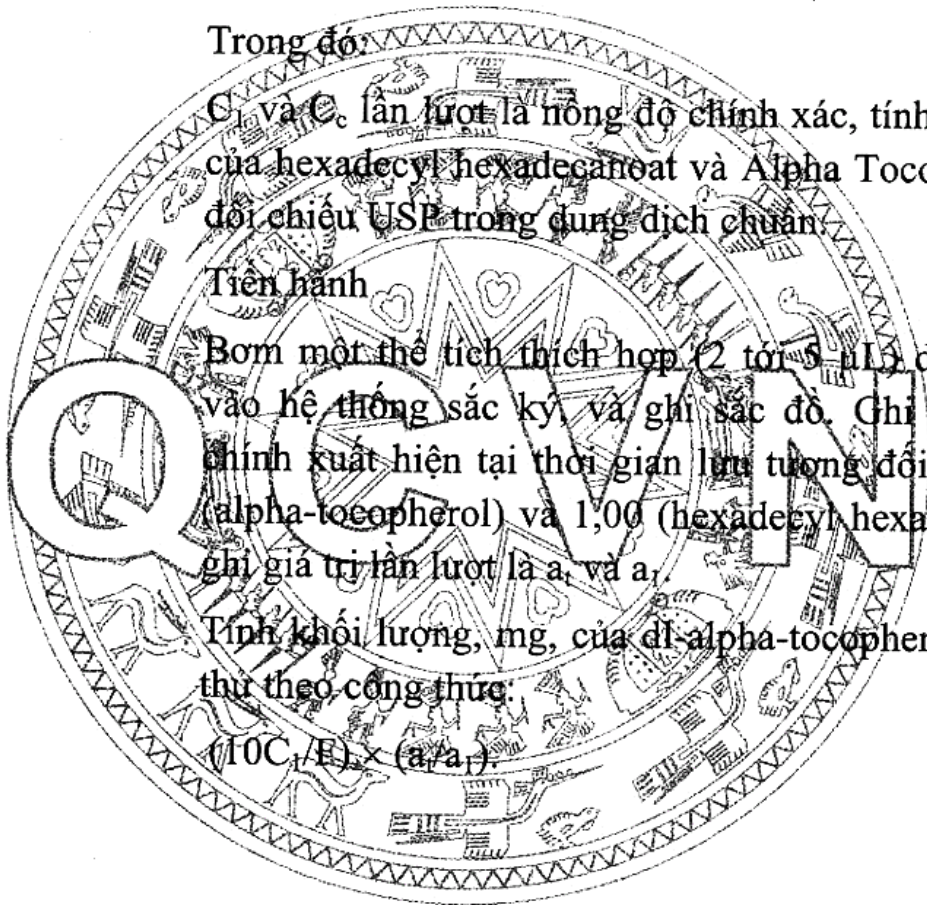 Trong đó:
C₁ và C_c lần lượt là nồng độ chính xác, tính
của hexadecyl hexadecanoat và Alpha Toco
đối chiếu USP trong dung dịch chuẩn.
Tiến hành
Bơm một thể tích thích hợp (2 tới 5 µL) d
vào hệ thống sắc ký, và ghi sắc đồ. Ghi
chính xuất hiện tại thời gian lưu tương đối
(alpha-tocopherol) và 1,00 (hexadecyl hexa
ghi giá trị lần lượt là aₜ và a₁.
Tính khối lượng, mg, của dl-alpha-tocopher
thử theo công thức:
(10C₁/F) × (aₜ/a₁).
QCVN